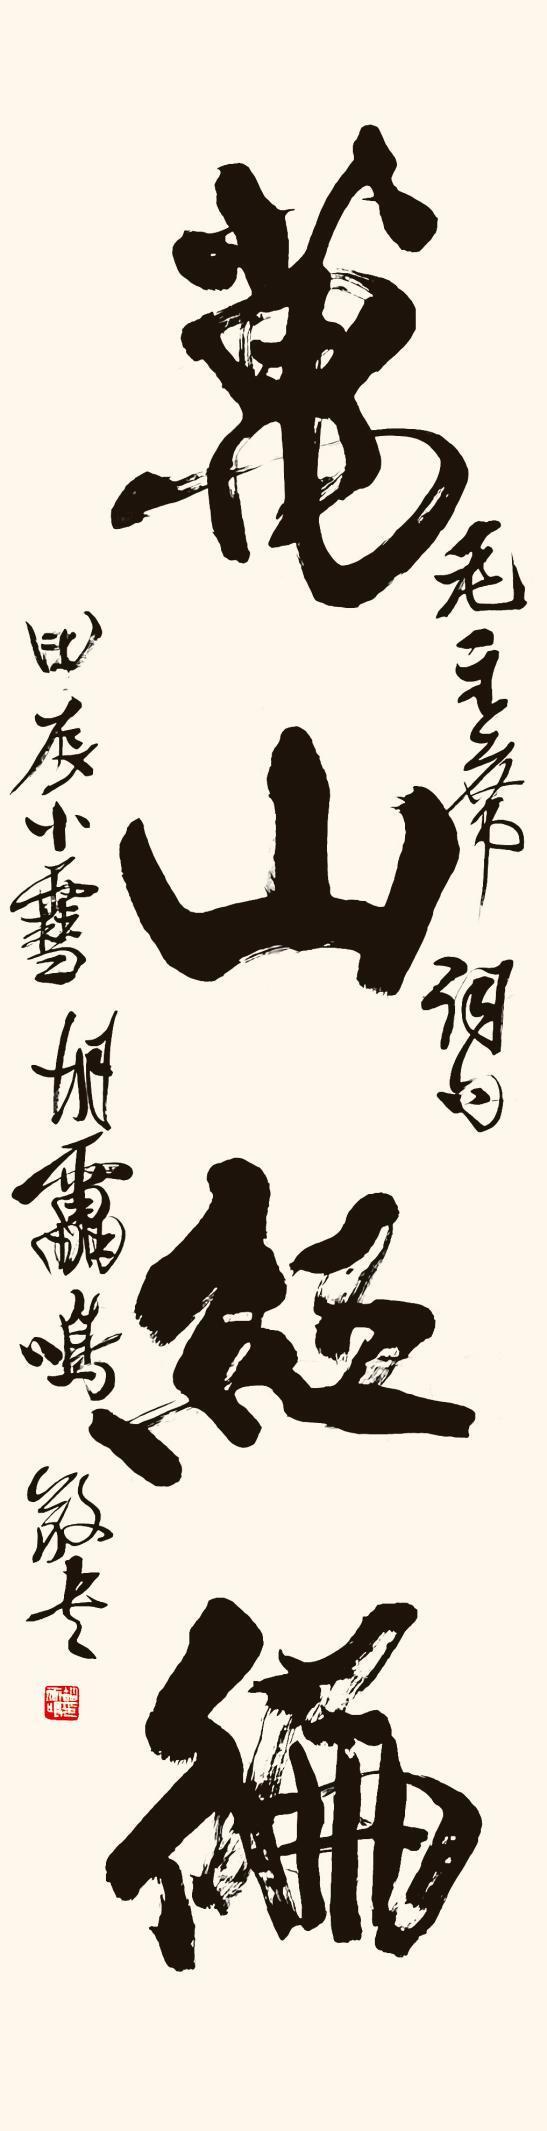 萬山紅徧
毛主席詞句
甲辰小雪胡霜鳴敬书